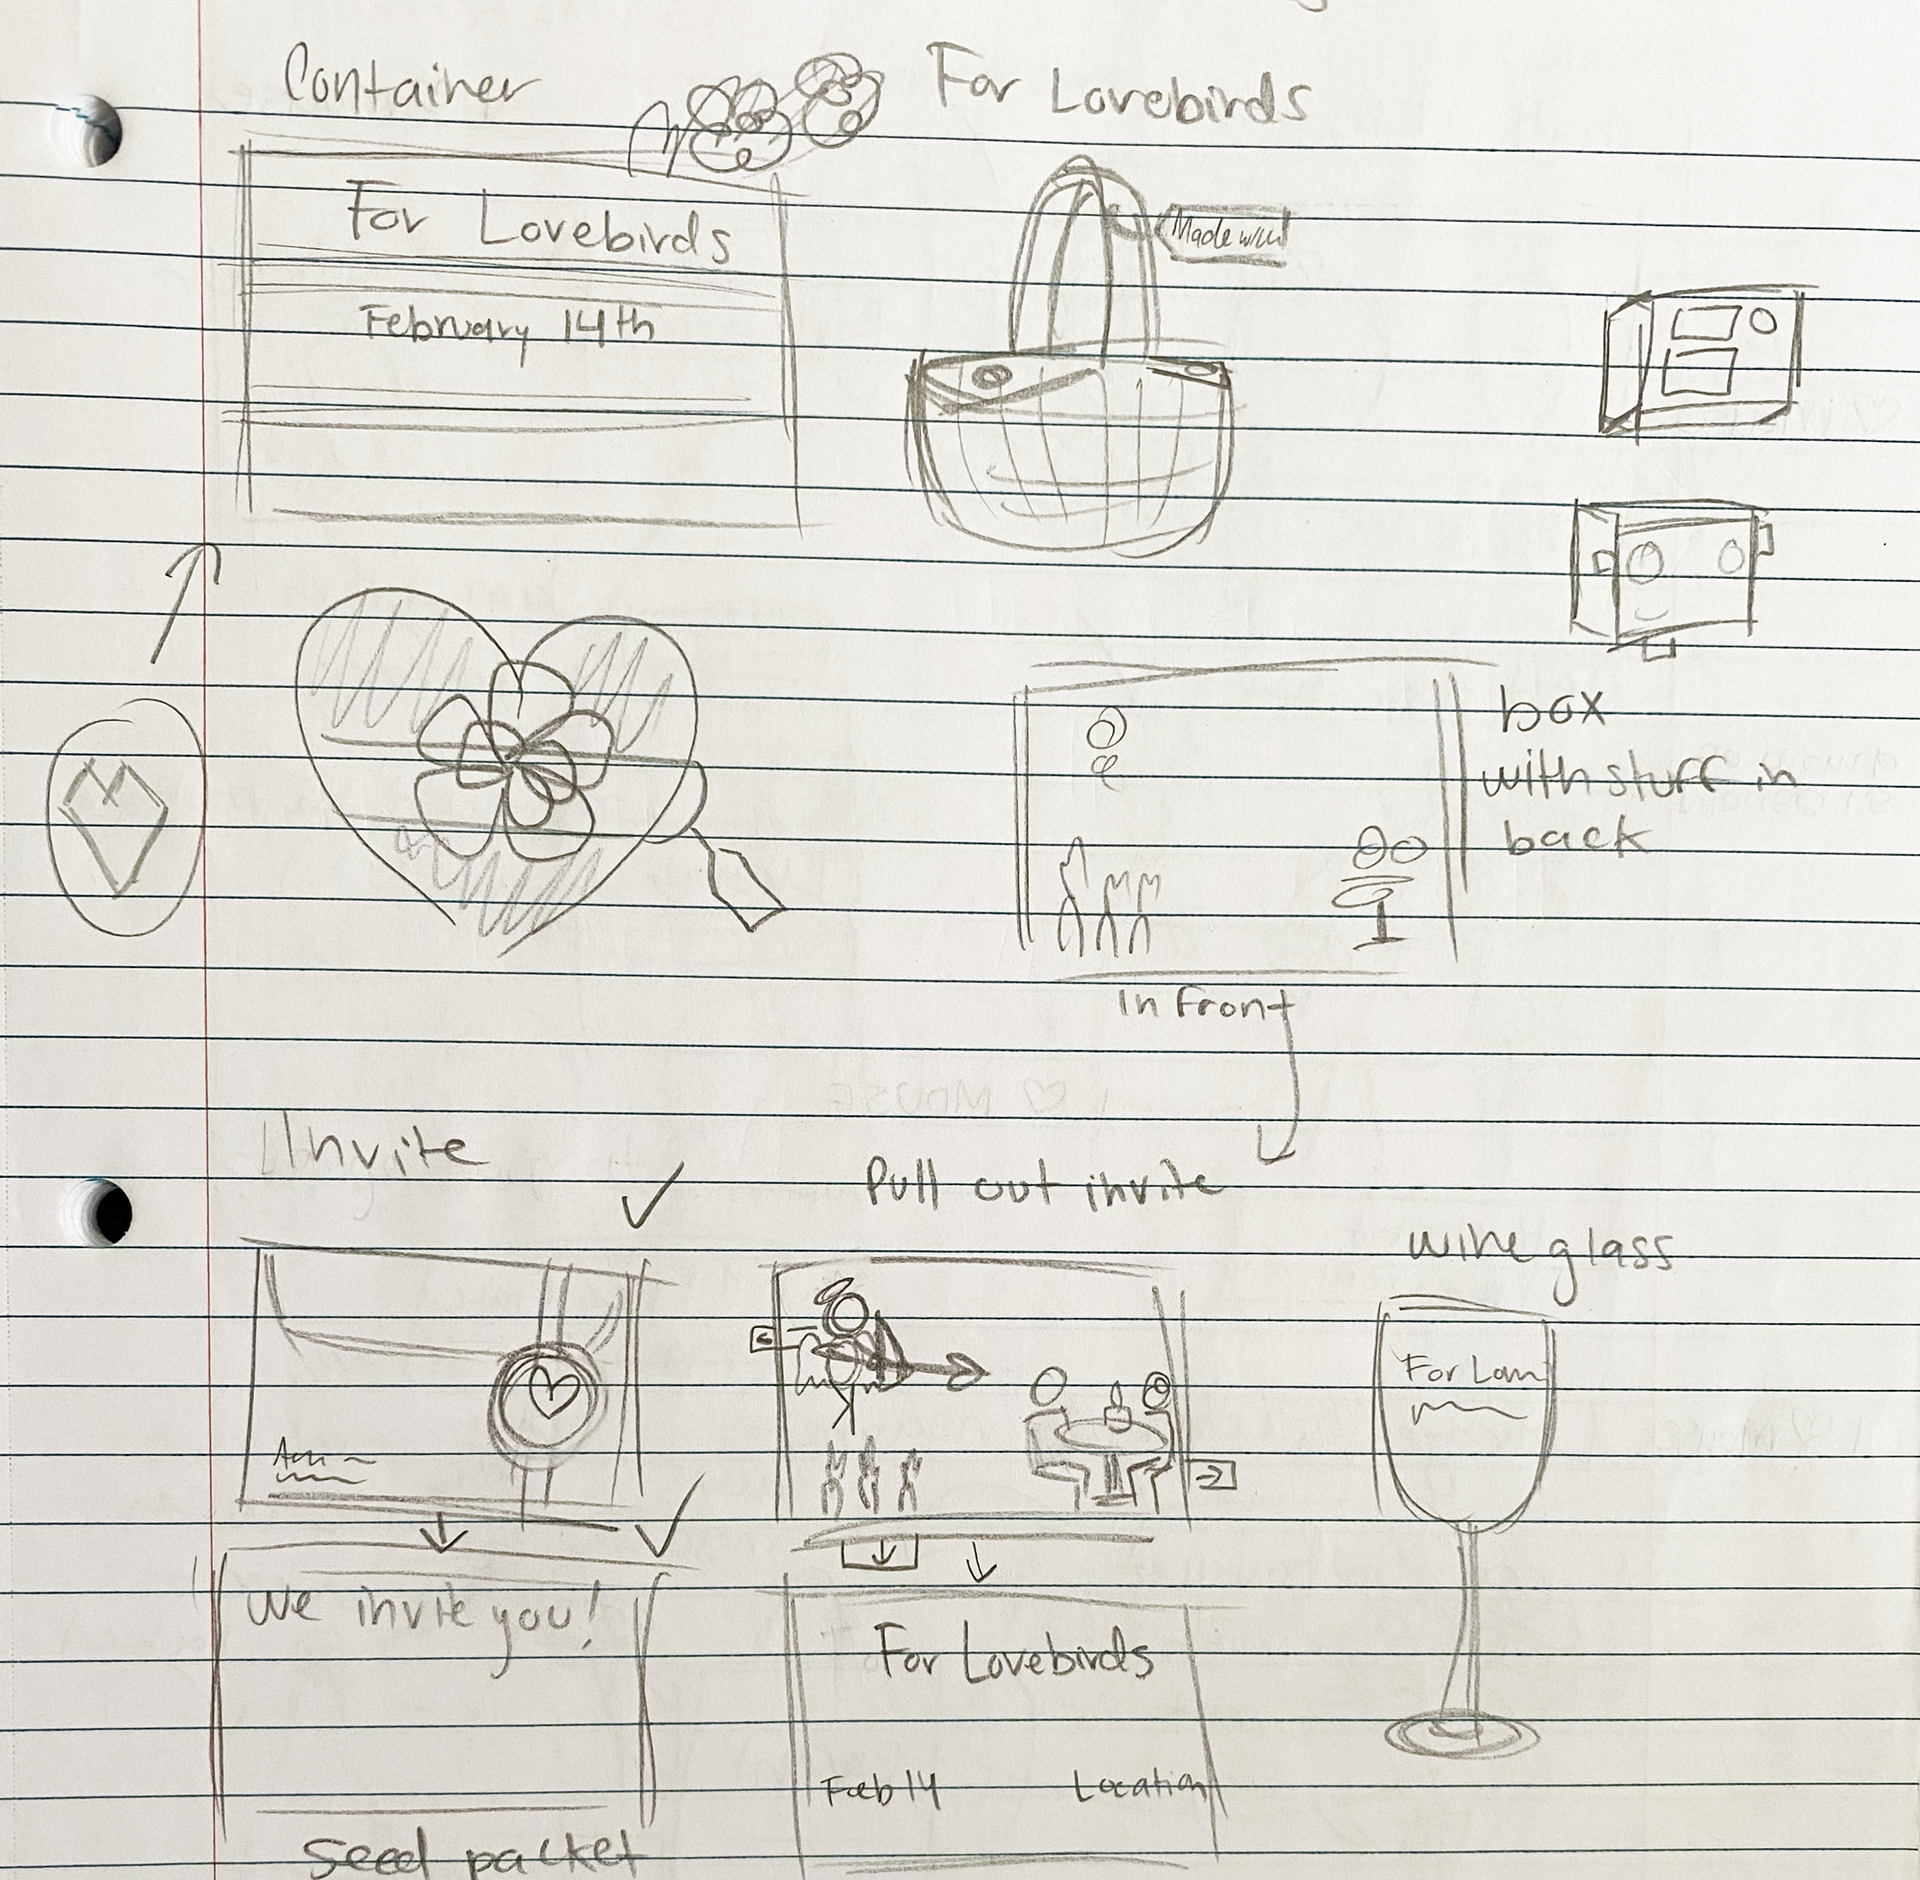 Container
For Lovebirds
For Lovebirds
February 14th
box
with stuff in
back
in front
Invite
Pull out invite
wine glass
For
We invite you!
For Lovebirds
Feb 14
Location
Seed packet